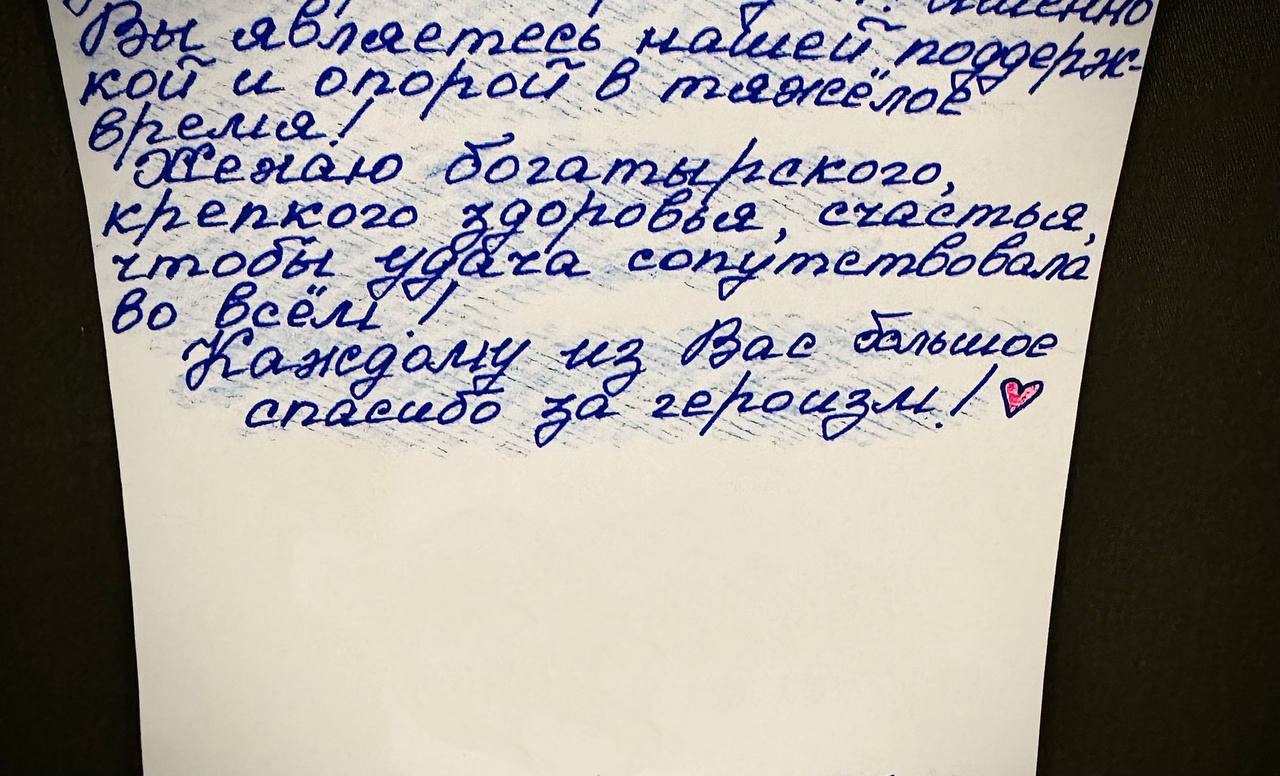 именно
Вы являетесь нашей поддерж-
кой и опорой в тяжёлое
время!
Желаю богатырского,
крепкого здоровья, счастья,
чтобы удача сопутствовала
во всём!
Каждому из Вас большое
спасибо за героизм!